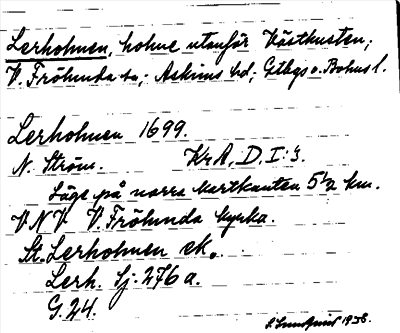 Lerholmen, holme utanför Västkusten;
V. Frölunda sn; Askims hd; Gtbgs o. Bohus l.
Lerholmen 1699.
N. Ström. KrA, D. I: 3.
Läge på norra kartkanten 5½ km.
V.N.V. V. Frölunda kyrka.
St. Lerholmen ek.
Lerh. Sj. 276 a.
G. 24.
1958